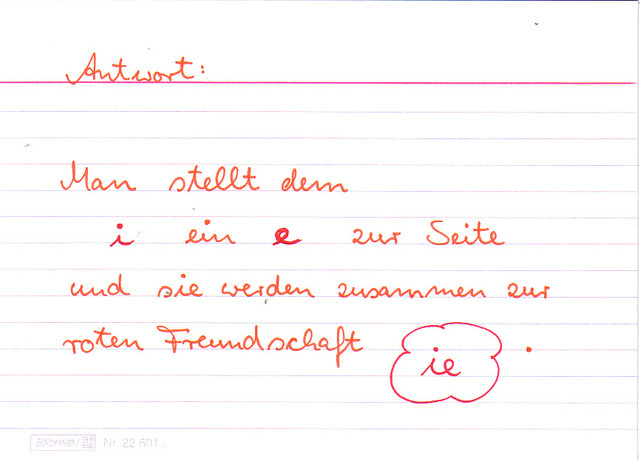 Antwort:
Man stellt dem
i ein e zur Seite
und sie werden zusammen zur
roten Freundschaft ie .
BRUNNEN Nr. 22 601..